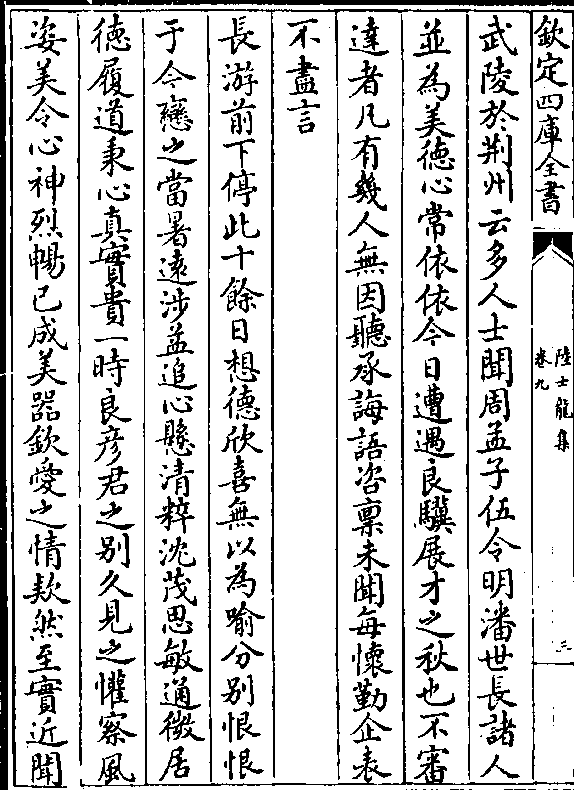 欽定四庫全書
陸士龍集
卷九
三
武陵於荆州云多人士聞周孟子伍令明潘世長諸人
並為美徳心常依依今日遭遇良驥展才之秋也不審
達者凡有幾人無因聽承誨語咨稟未聞每懐勤企表
不盡言
長游前下停此十餘日想德欣喜無以為喻分别恨恨
于今戀之當暑遠涉益追心懸清粹沈茂思敏通微居
徳履道秉心真實貴一時良彦君之别久見之懽察風
姿美令心神烈暢已成美器欽愛之情欵然至實近聞